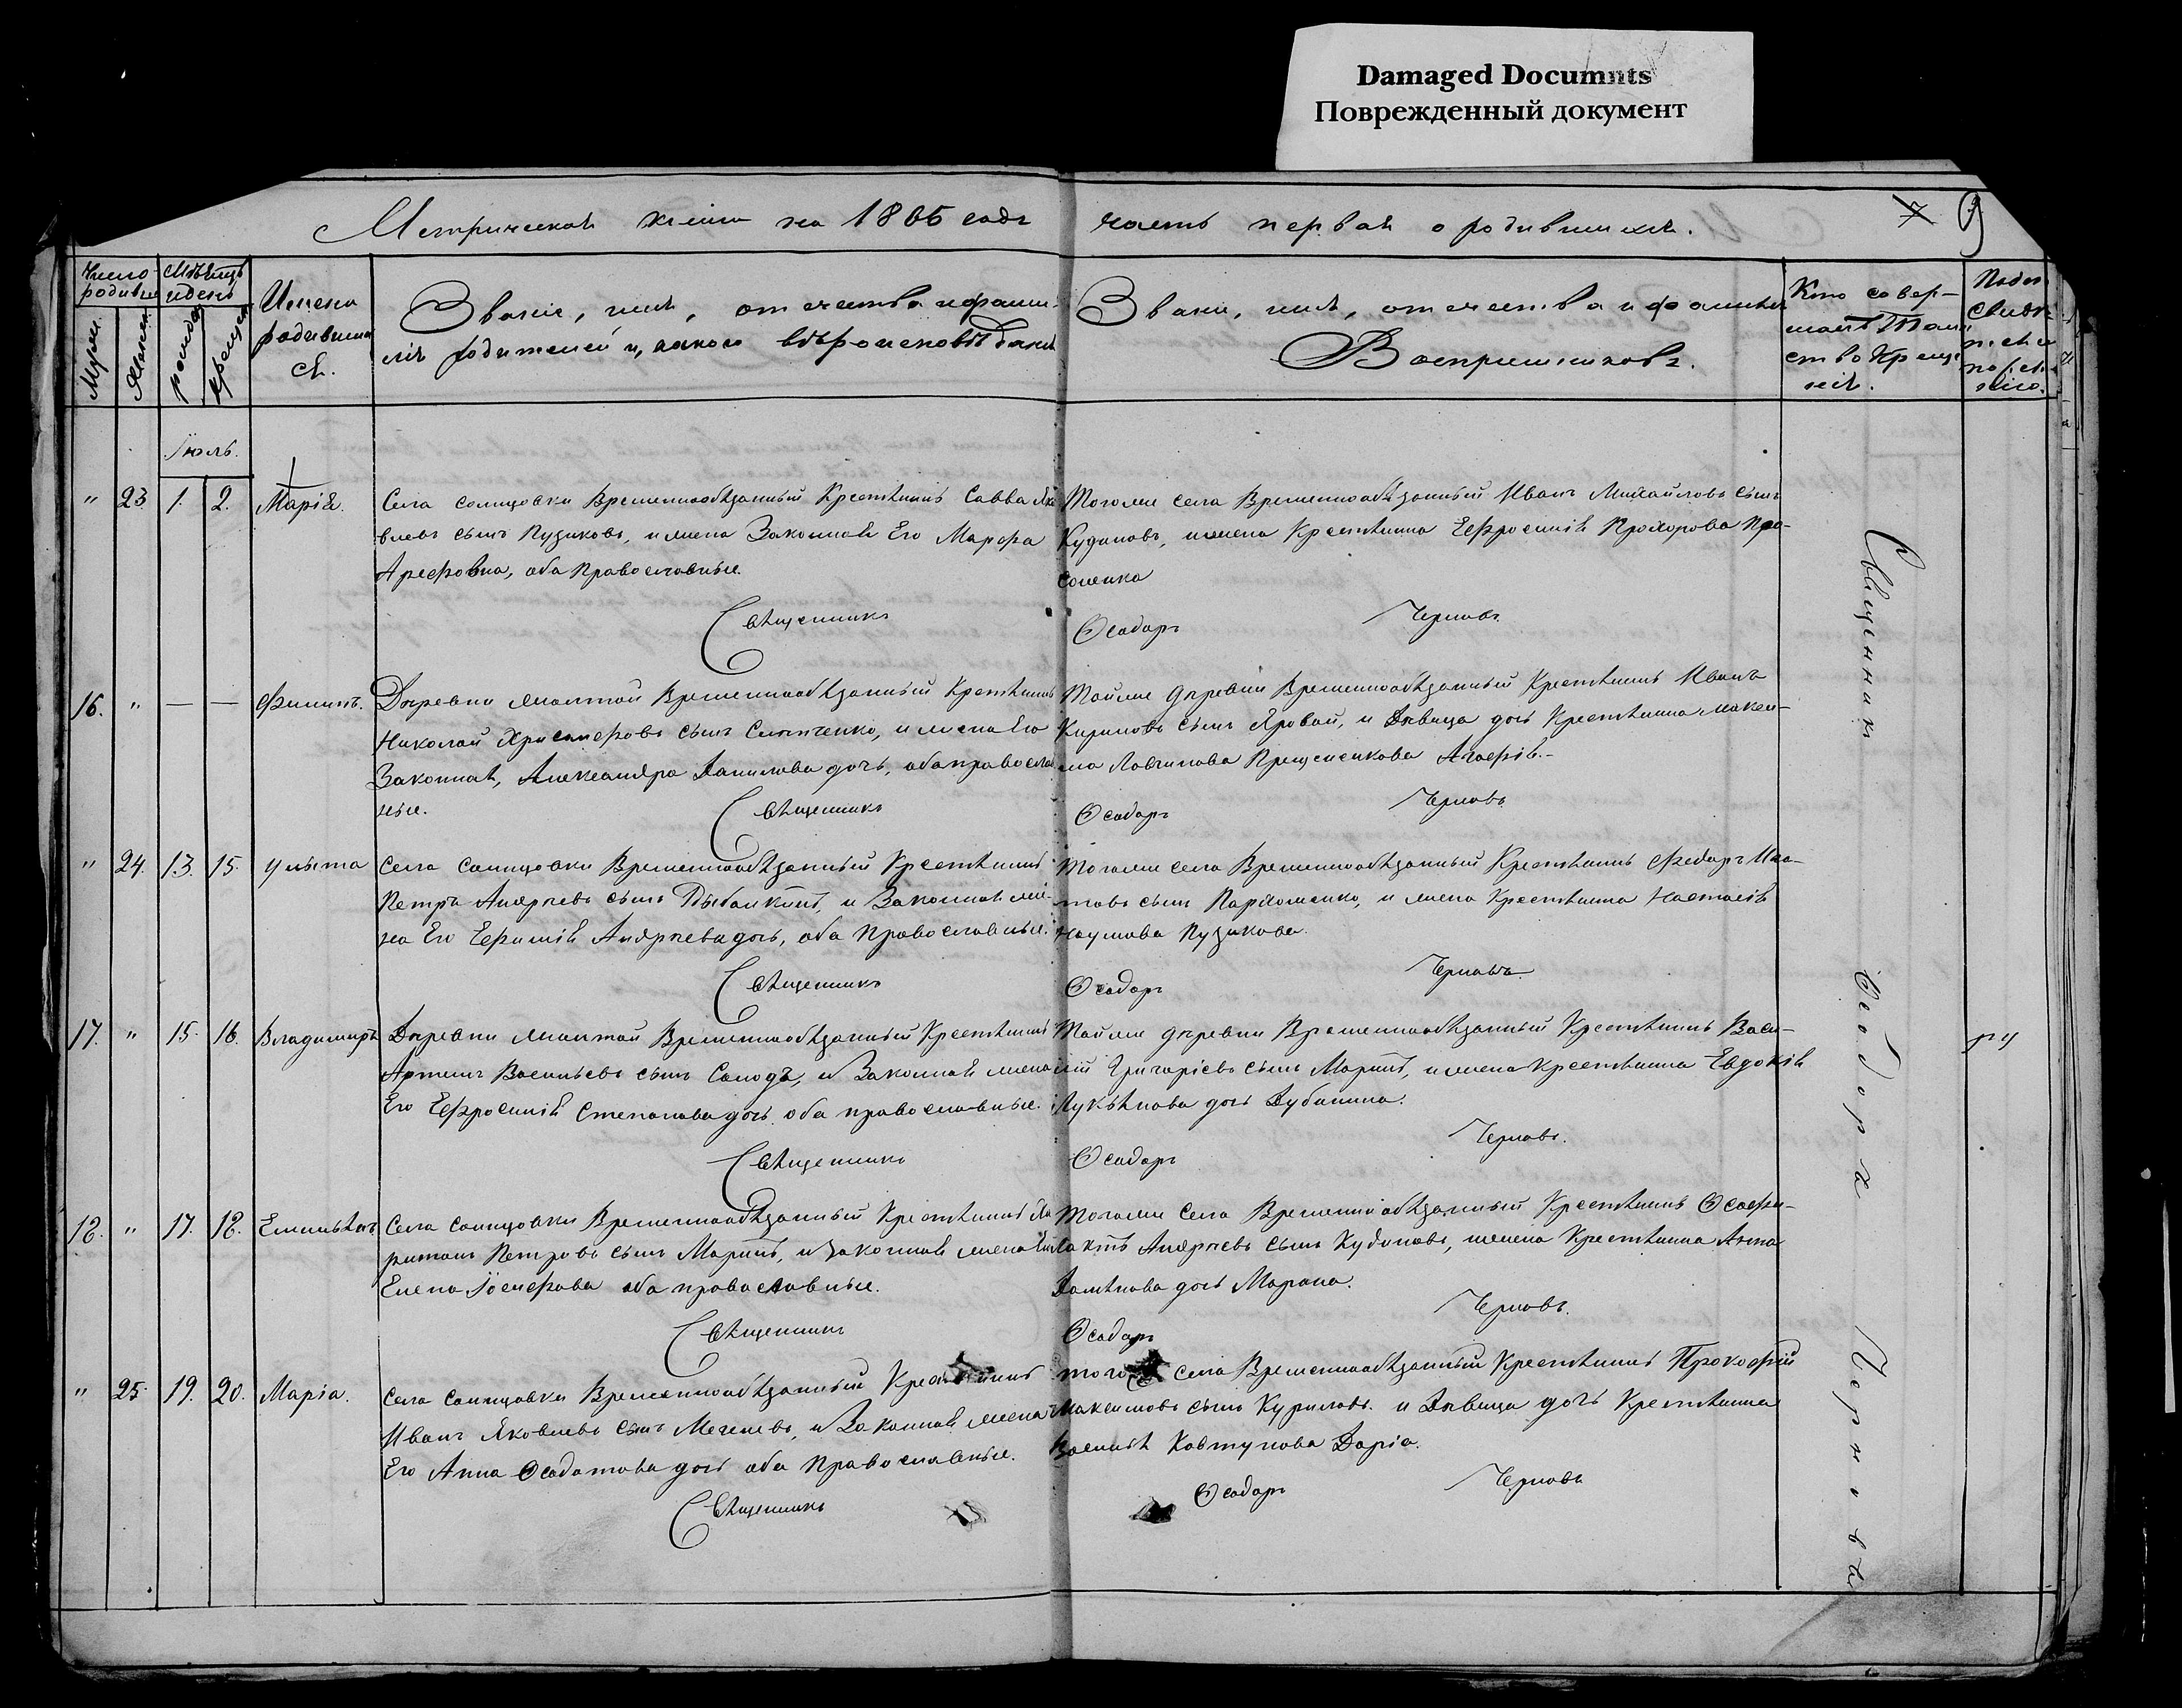 Damaged Documnts
Поврежденный документ
Метрической книги на 1865 годъ часть первая о родившихся.
7 9
Число родивш
Мѣсяцъ и день
Муж.
Женск.
рожден
крещен
Имена
родивших
ся.
Званіе, имя, отчество и фами-
лія родителей и, какого вѣроисповѣданія
Званіе, имя, отчество и фамилія
Воспріемниковъ.
Кто совер-
шалъ Таин
ство Креще
нія.
Іюль.
" 23 1. 2. Марія.
Села Солнцовки Временнообязанный Крестьянинъ Савва Яко
влевъ сынъ Пузиковъ, и жена Законная Его Марфа
Арефовна, оба Православные.
Тогоже села Временнообязанный Иванъ Михайловъ сынъ
Кудиновъ, и жена Крестьянина Ефросинія Прохорова Про-
соленка
Священникъ Ѳеодоръ Черновъ
16. " — — Филипъ.
Деревни Жолтой Временнообязанный Крестьянинъ
Николай Христофоровъ сынъ, и жена Его
Законная, Александра Данилова дочь, оба православ
ные.
Тойже деревни Временнообязанный Крестьянинъ Иванъ
Кириловъ сынъ Яровой, и Дѣвица дочь Крестьянина Макси-
ма Агафія.-
Священникъ Ѳеодоръ Черновъ
" 24. 13. 15. Улита
Села Солнцовки Временнообязанный Крестьянинъ
Петръ Андреевъ сынъ Рыбалкинъ, и Законная же-
на Его Ефимія Андреева дочь, оба Православные.
Тогоже села Временнообязанный Крестьянинъ Федоръ Игна-
товъ сынъ Пархоменко, и жена Крестьянина Настасія
Наумова Пузикова.
Священникъ Ѳеодоръ Черновъ
17. " 15. 16. Владимиръ
Деревни Жолтой Временнообязанный Крестьянинъ
Артемъ Васильевъ сынъ Солодъ, и Законная жена
Его Ефросинія Степанова дочь оба православные.
Тойже деревни Временнообязанный Крестьянинъ Васи-
лій Григоріевъ сынъ, и жена Крестьянина Евдокія
Лукьянова дочь Дубинина.
Священникъ Ѳеодоръ Черновъ.
18. " 17. 18. Емильянъ
Села Солнцовки Временнообязанный Крестьянинъ Ха
ритонъ Петровъ сынъ, и Законная жена Его
Елена Іосифова оба православные.
Тогоже села Временнообязанный Крестьянинъ Ѳеофи-
лактъ Андреевъ сынъ Кудиновъ, и жена Крестьянина Анна
дочь Марина.
Священникъ Ѳеодоръ Черновъ.
" 25. 19. 20. Марія.
Села Солнцовки Временнообязанный Крестьянинъ
Иванъ Яковлевъ сынъ, и Законная жена
Его Анна Ѳедотова дочь оба Православные.
того села Временнообязанный Крестьянинъ Прокофій
Максимовъ сынъ Куриловъ. и Дѣвица дочь Крестьянина
Василія Ковтунова Дарія.
Священникъ Ѳеодоръ Черновъ
Священникъ Ѳеодоръ Черновъ